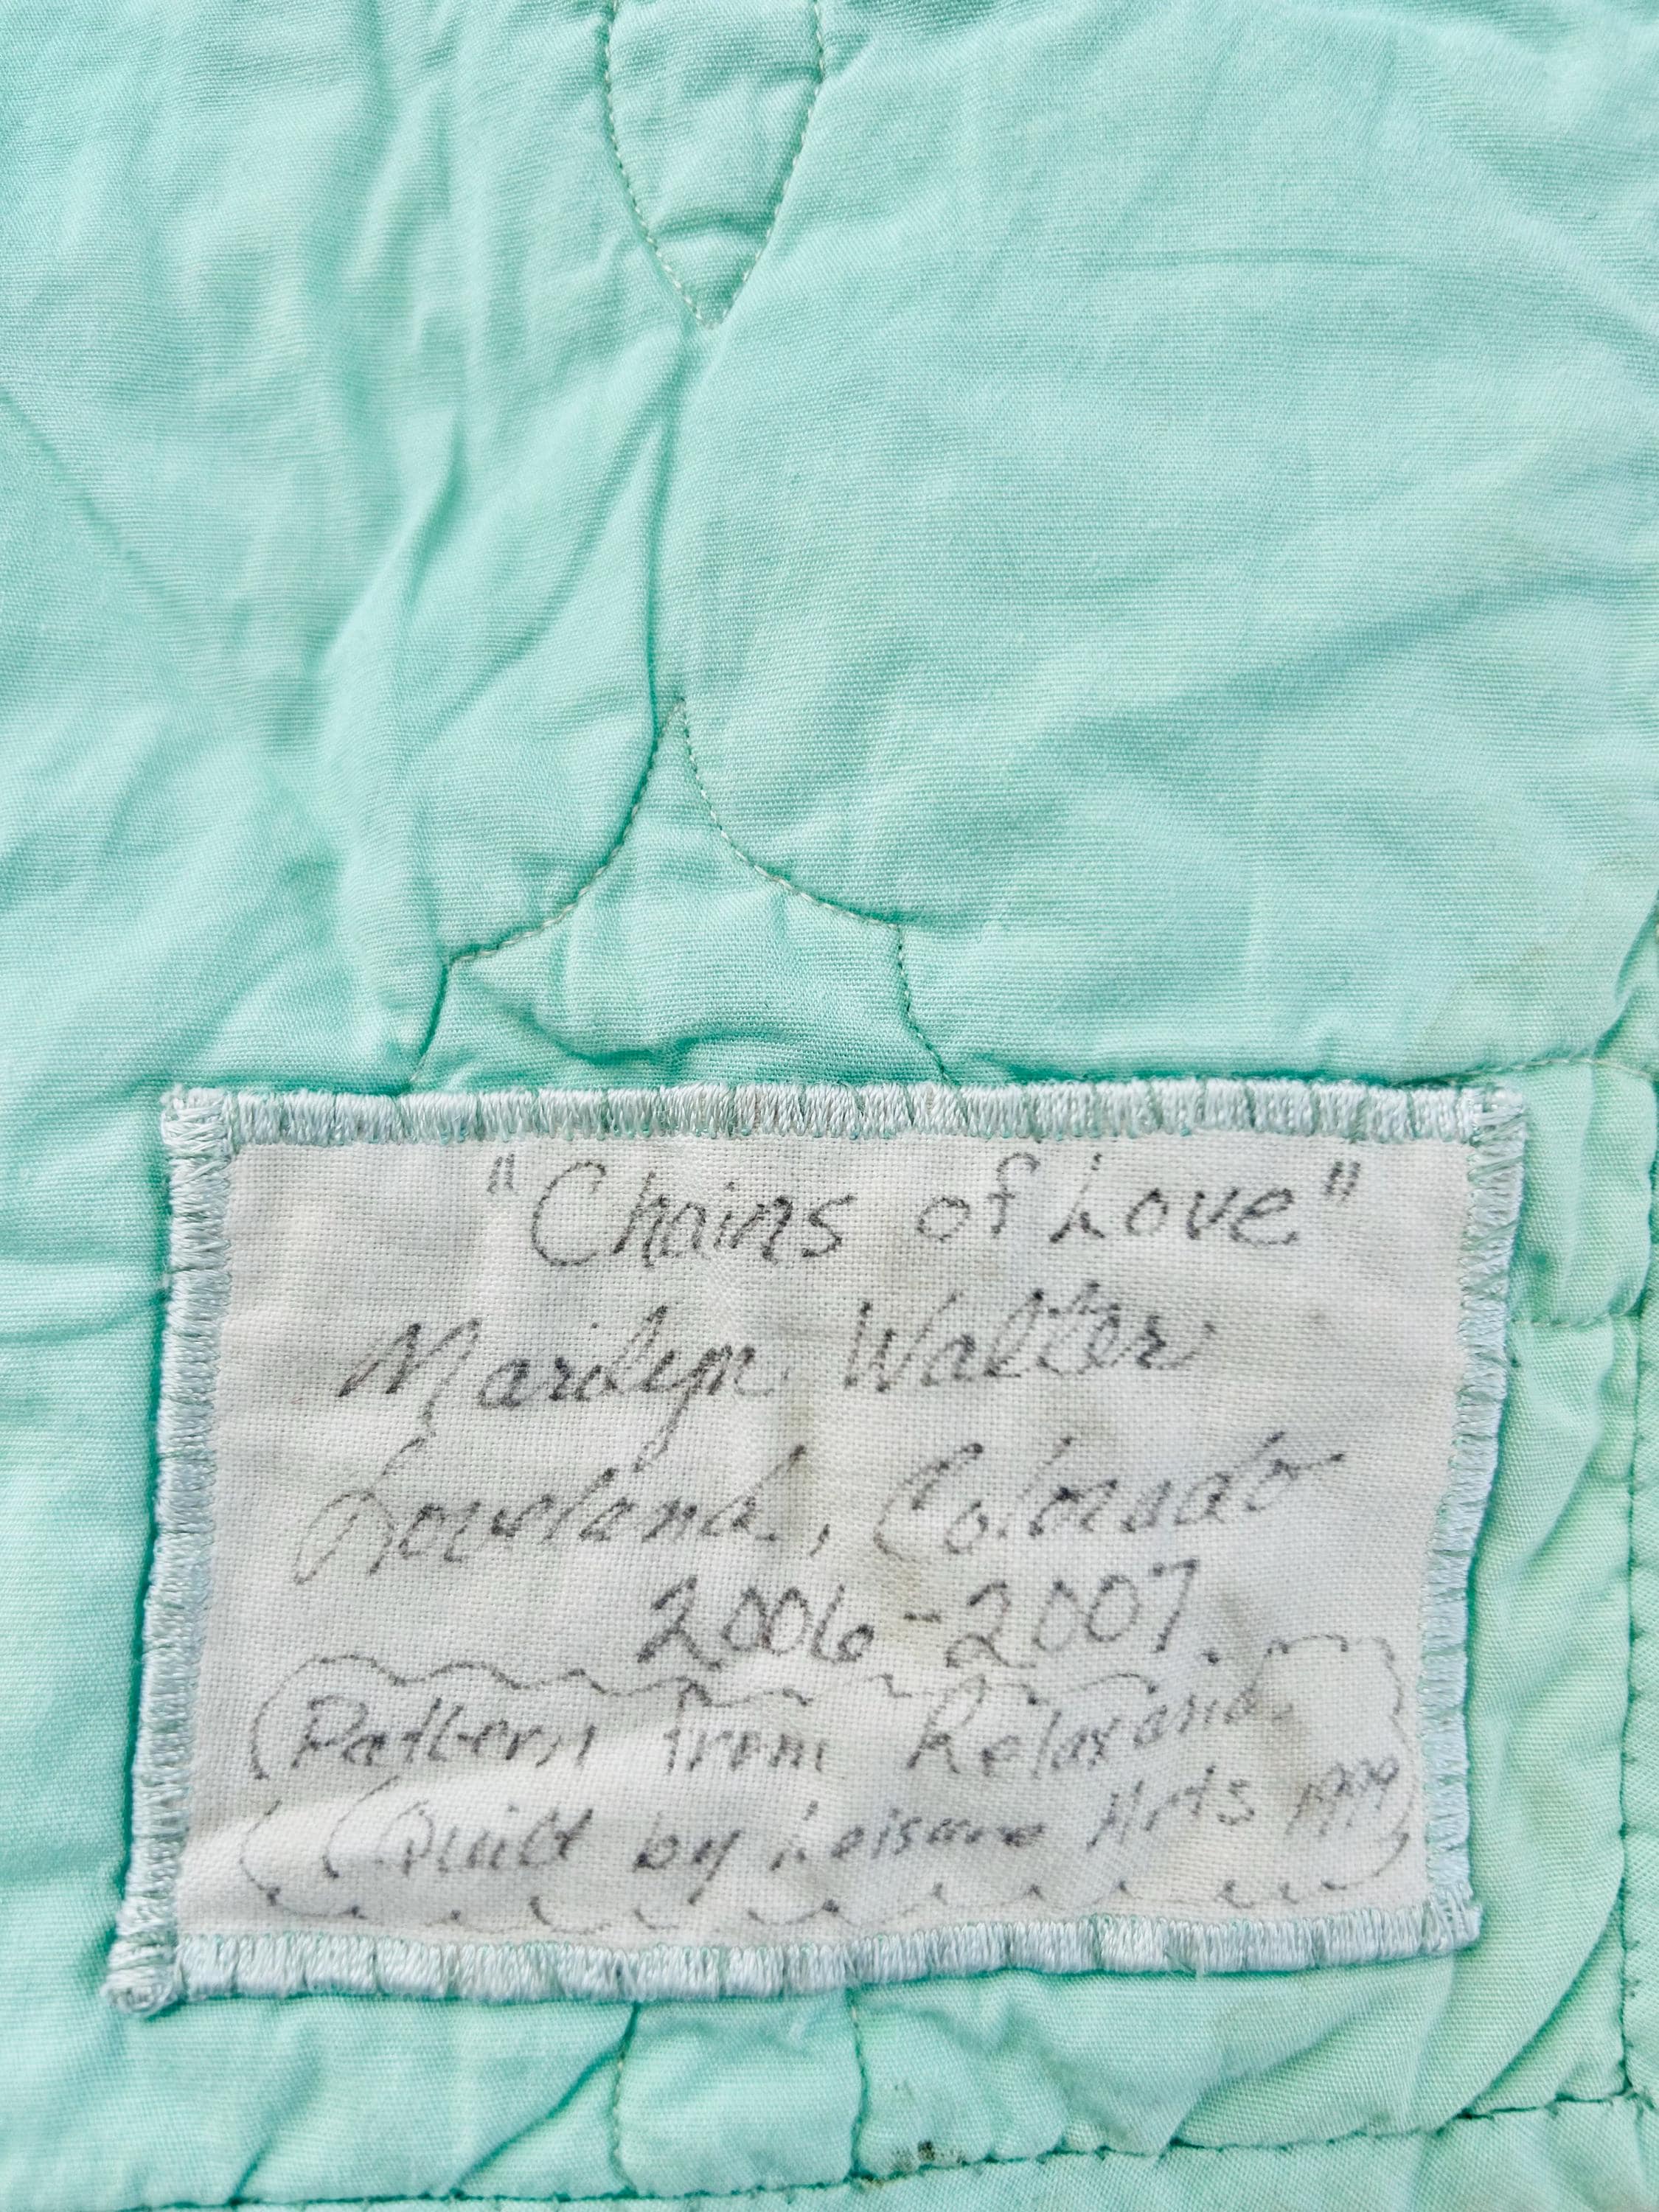 "Chains of Love"
Marilyn Walter
Loveland, Colorado
2006-2007
Pattern from Relax and
Quilt by Leisure Arts 1999